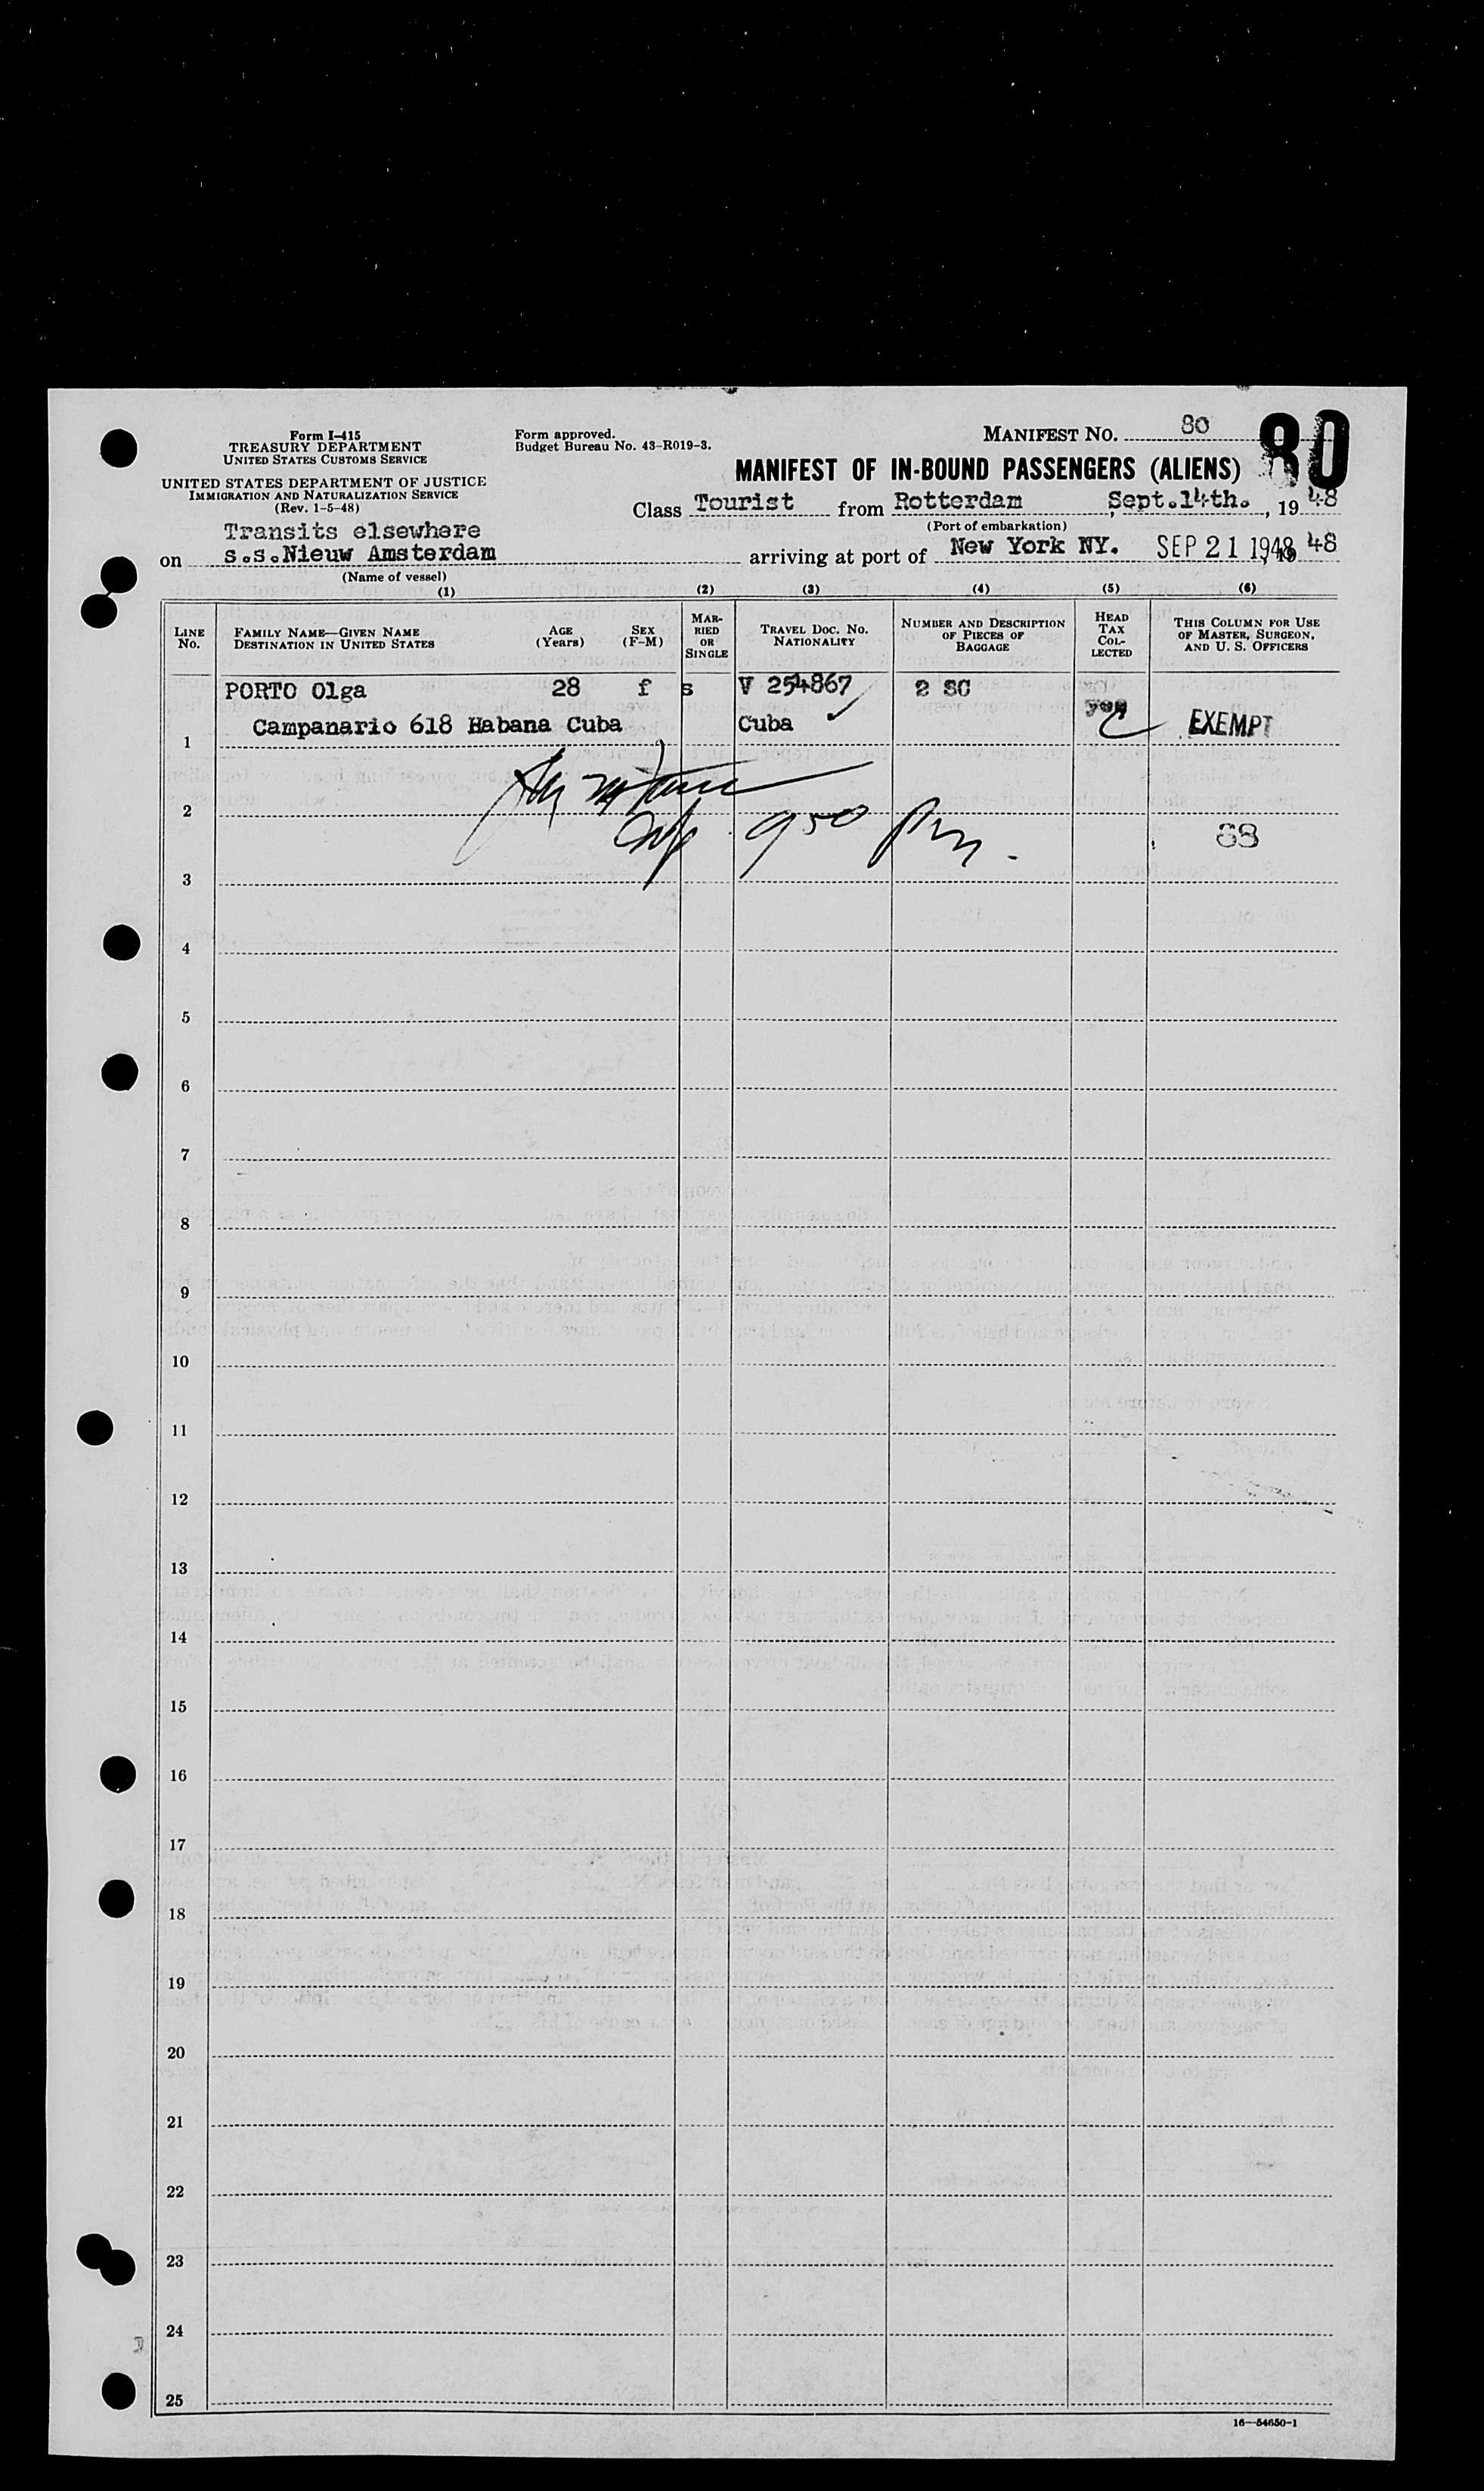 Form I-415
TREASURY DEPARTMENT
UNITED STATES CUSTOMS SERVICE
UNITED STATES DEPARTMENT OF JUSTICE
IMMIGRATION AND NATURALIZATION SERVICE
(Rev. 1-5-48)
Form approved.
Budget Bureau No. 43-R019-3.
MANIFEST NO. 80
80
MANIFEST OF IN-BOUND PASSENGERS (ALIENS)
Class Tourist from Rotterdam, Sept.14th., 1948
(Port of embarkation)
Transits elsewhere
on s.s.Nieuw Amsterdam arriving at port of New York NY. SEP 21 1948, 48
(Name of vessel)
(1) (2) (3) (4) (5) (6)
LINE No. FAMILY NAME—GIVEN NAME DESTINATION IN UNITED STATES AGE (Years) SEX (F-M) MARRIED OR SINGLE TRAVEL DOC. NO. NATIONALITY NUMBER AND DESCRIPTION OF PIECES OF BAGGAGE HEAD TAX COLLECTED THIS COLUMN FOR USE OF MASTER, SURGEON, AND U. S. OFFICERS
PORTO Olga 28 f s V 254867 2 SC
1 Campanario 618 Habana Cuba Cuba EXEMPT
2
950 Pm. 88
3
4
5
6
7
8
9
10
11
12
13
14
15
16
17
18
19
20
21
22
23
24
25
16—54650-1